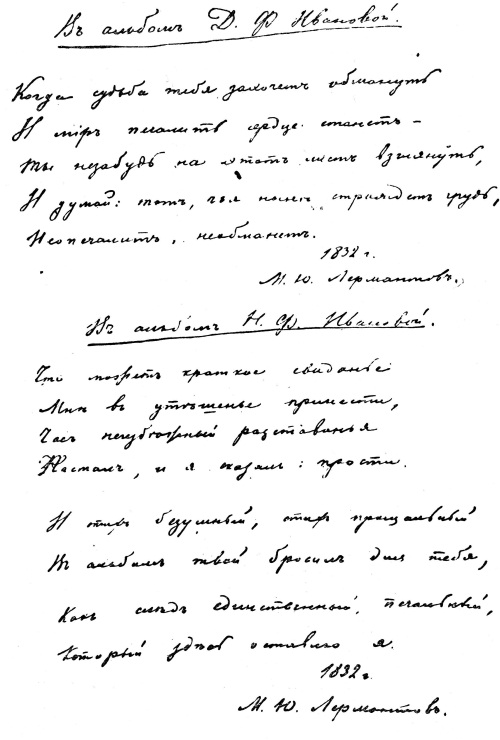 Въ альбомъ Д. Ф Ивановой.
Когда судьба тебя захочетъ обмануть
И міръ печалить сердце станетъ –
Ты незабудь на этотъ листъ взглянуть,
И думай: тотъ, чья ныне страждетъ грудь,
Неопечалитъ, необманетъ.
1832 г.
М. Ю. Лермантовъ.
Въ альбомъ Н. Ф. Ивановой.
Что можетъ краткое свиданье
Мне въ утешенье принести,
Часъ неизбежный разставанья
Насталъ, и я сказалъ: прости.
И стихъ безумный, стихъ прощальный
Въ альбомъ твой бросилъ для тебя,
Какъ следъ единственный, печальный,
Который здесь оставлю я.
1832 г.
М. Ю. Лермонтовъ.